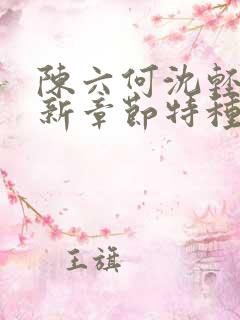 陳六何沈輕
新章節特種
王旗